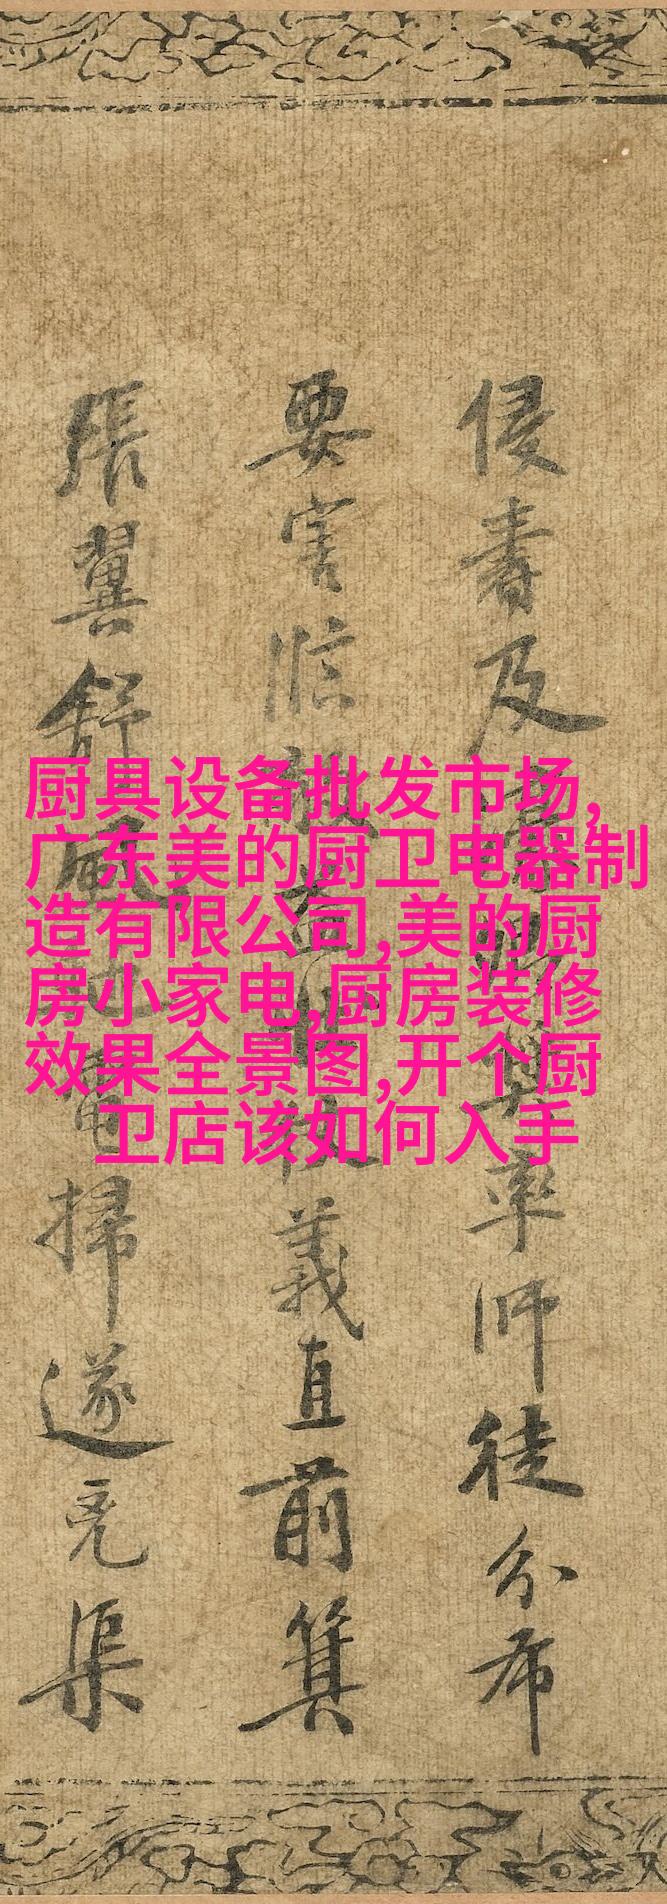 厨具设备批发市场,
广东美的厨卫电器制
造有限公司,美的厨
房小家电,厨房装修
效果全景图,开个厨
卫店该如何入手
侵書及率师徒分布
要害临義直前箕
張翼舒掃遂渠